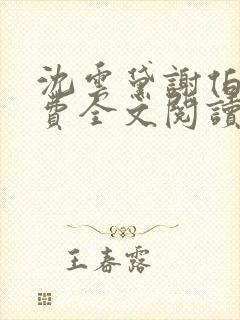 沈雲黛謝伯
費全文閱讀
王春露